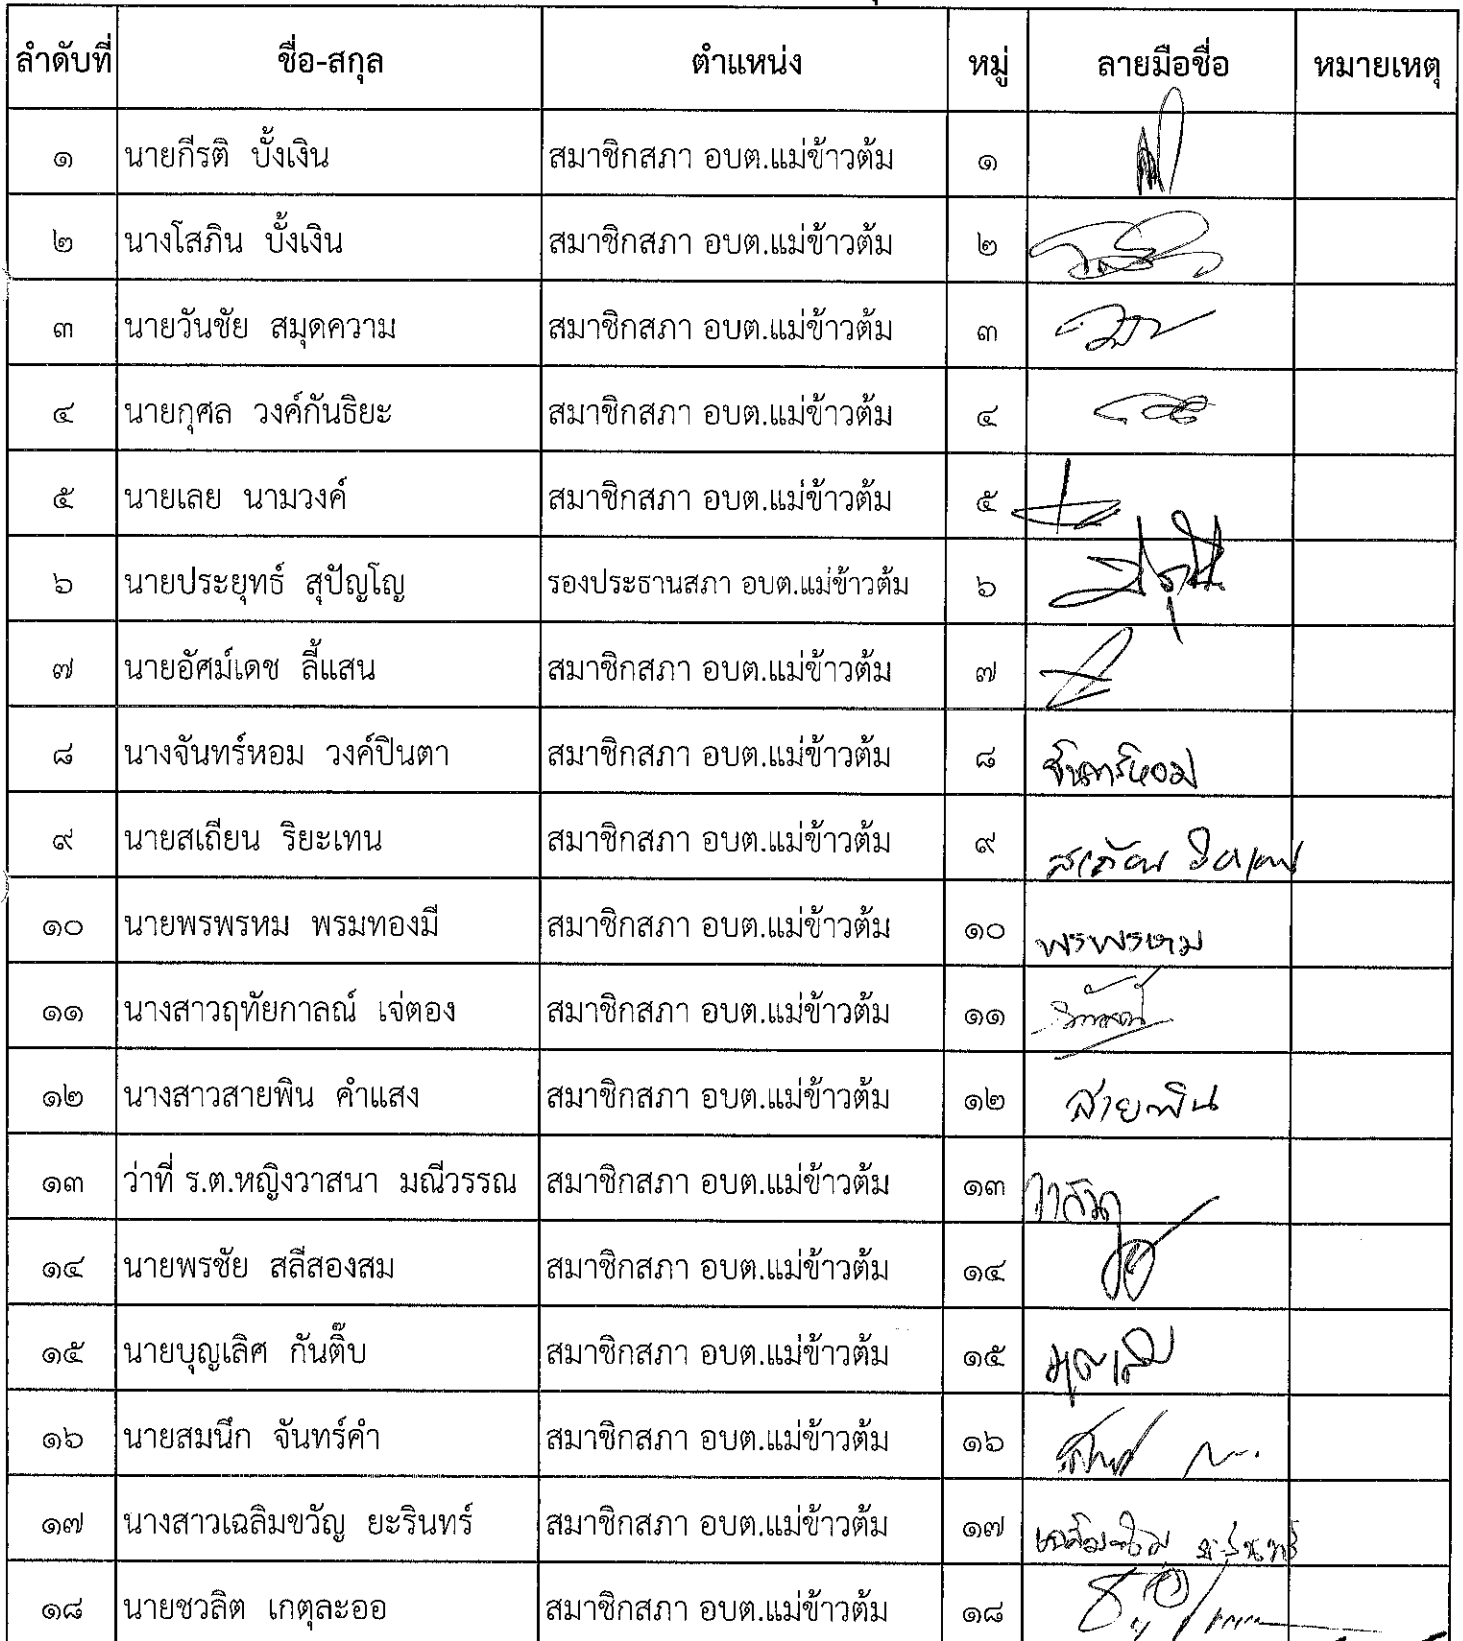 ลำดับที่ ชื่อ-สกุล ตำแหน่ง หมู่ ลายมือชื่อ หมายเหตุ
๑ นายกีรติ บั้งเงิน สมาชิกสภา อบต.แม่ข้าวต้ม ๑
๒ นางโสภิน บั้งเงิน สมาชิกสภา อบต.แม่ข้าวต้ม ๒
๓ นายวันชัย สมุดความ สมาชิกสภา อบต.แม่ข้าวต้ม ๓
๔ นายกุศล วงค์กันธิยะ สมาชิกสภา อบต.แม่ข้าวต้ม ๔
๕ นายเลย นามวงค์ สมาชิกสภา อบต.แม่ข้าวต้ม ๕
๖ นายประยุทธ์ สุปัญโญ รองประธานสภา อบต.แม่ข้าวต้ม ๖
๗ นายอัศม์เดช ลี้แสน สมาชิกสภา อบต.แม่ข้าวต้ม ๗
๘ นางจันทร์หอม วงค์ปินตา สมาชิกสภา อบต.แม่ข้าวต้ม ๘ จันทร์หอม
๙ นายสเถียน ริยะเทน สมาชิกสภา อบต.แม่ข้าวต้ม ๙ สเถียน ริยะเทน
๑๐ นายพรพรหม พรมทองมี สมาชิกสภา อบต.แม่ข้าวต้ม ๑๐ พรพรหม
๑๑ นางสาวฤทัยกาลณ์ เจ่ตอง สมาชิกสภา อบต.แม่ข้าวต้ม ๑๑
๑๒ นางสาวสายพิน คำแสง สมาชิกสภา อบต.แม่ข้าวต้ม ๑๒ สายพิน
๑๓ ว่าที่ ร.ต.หญิงวาสนา มณีวรรณ สมาชิกสภา อบต.แม่ข้าวต้ม ๑๓
๑๔ นายพรชัย สลีสองสม สมาชิกสภา อบต.แม่ข้าวต้ม ๑๔
๑๕ นายบุญเลิศ กันติ๊บ สมาชิกสภา อบต.แม่ข้าวต้ม ๑๕
๑๖ นายสมนึก จันทร์คำ สมาชิกสภา อบต.แม่ข้าวต้ม ๑๖
๑๗ นางสาวเฉลิมขวัญ ยะรินทร์ สมาชิกสภา อบต.แม่ข้าวต้ม ๑๗ เฉลิมขวัญ ยะรินทร์
๑๘ นายชวลิต เกตุละออ สมาชิกสภา อบต.แม่ข้าวต้ม ๑๘